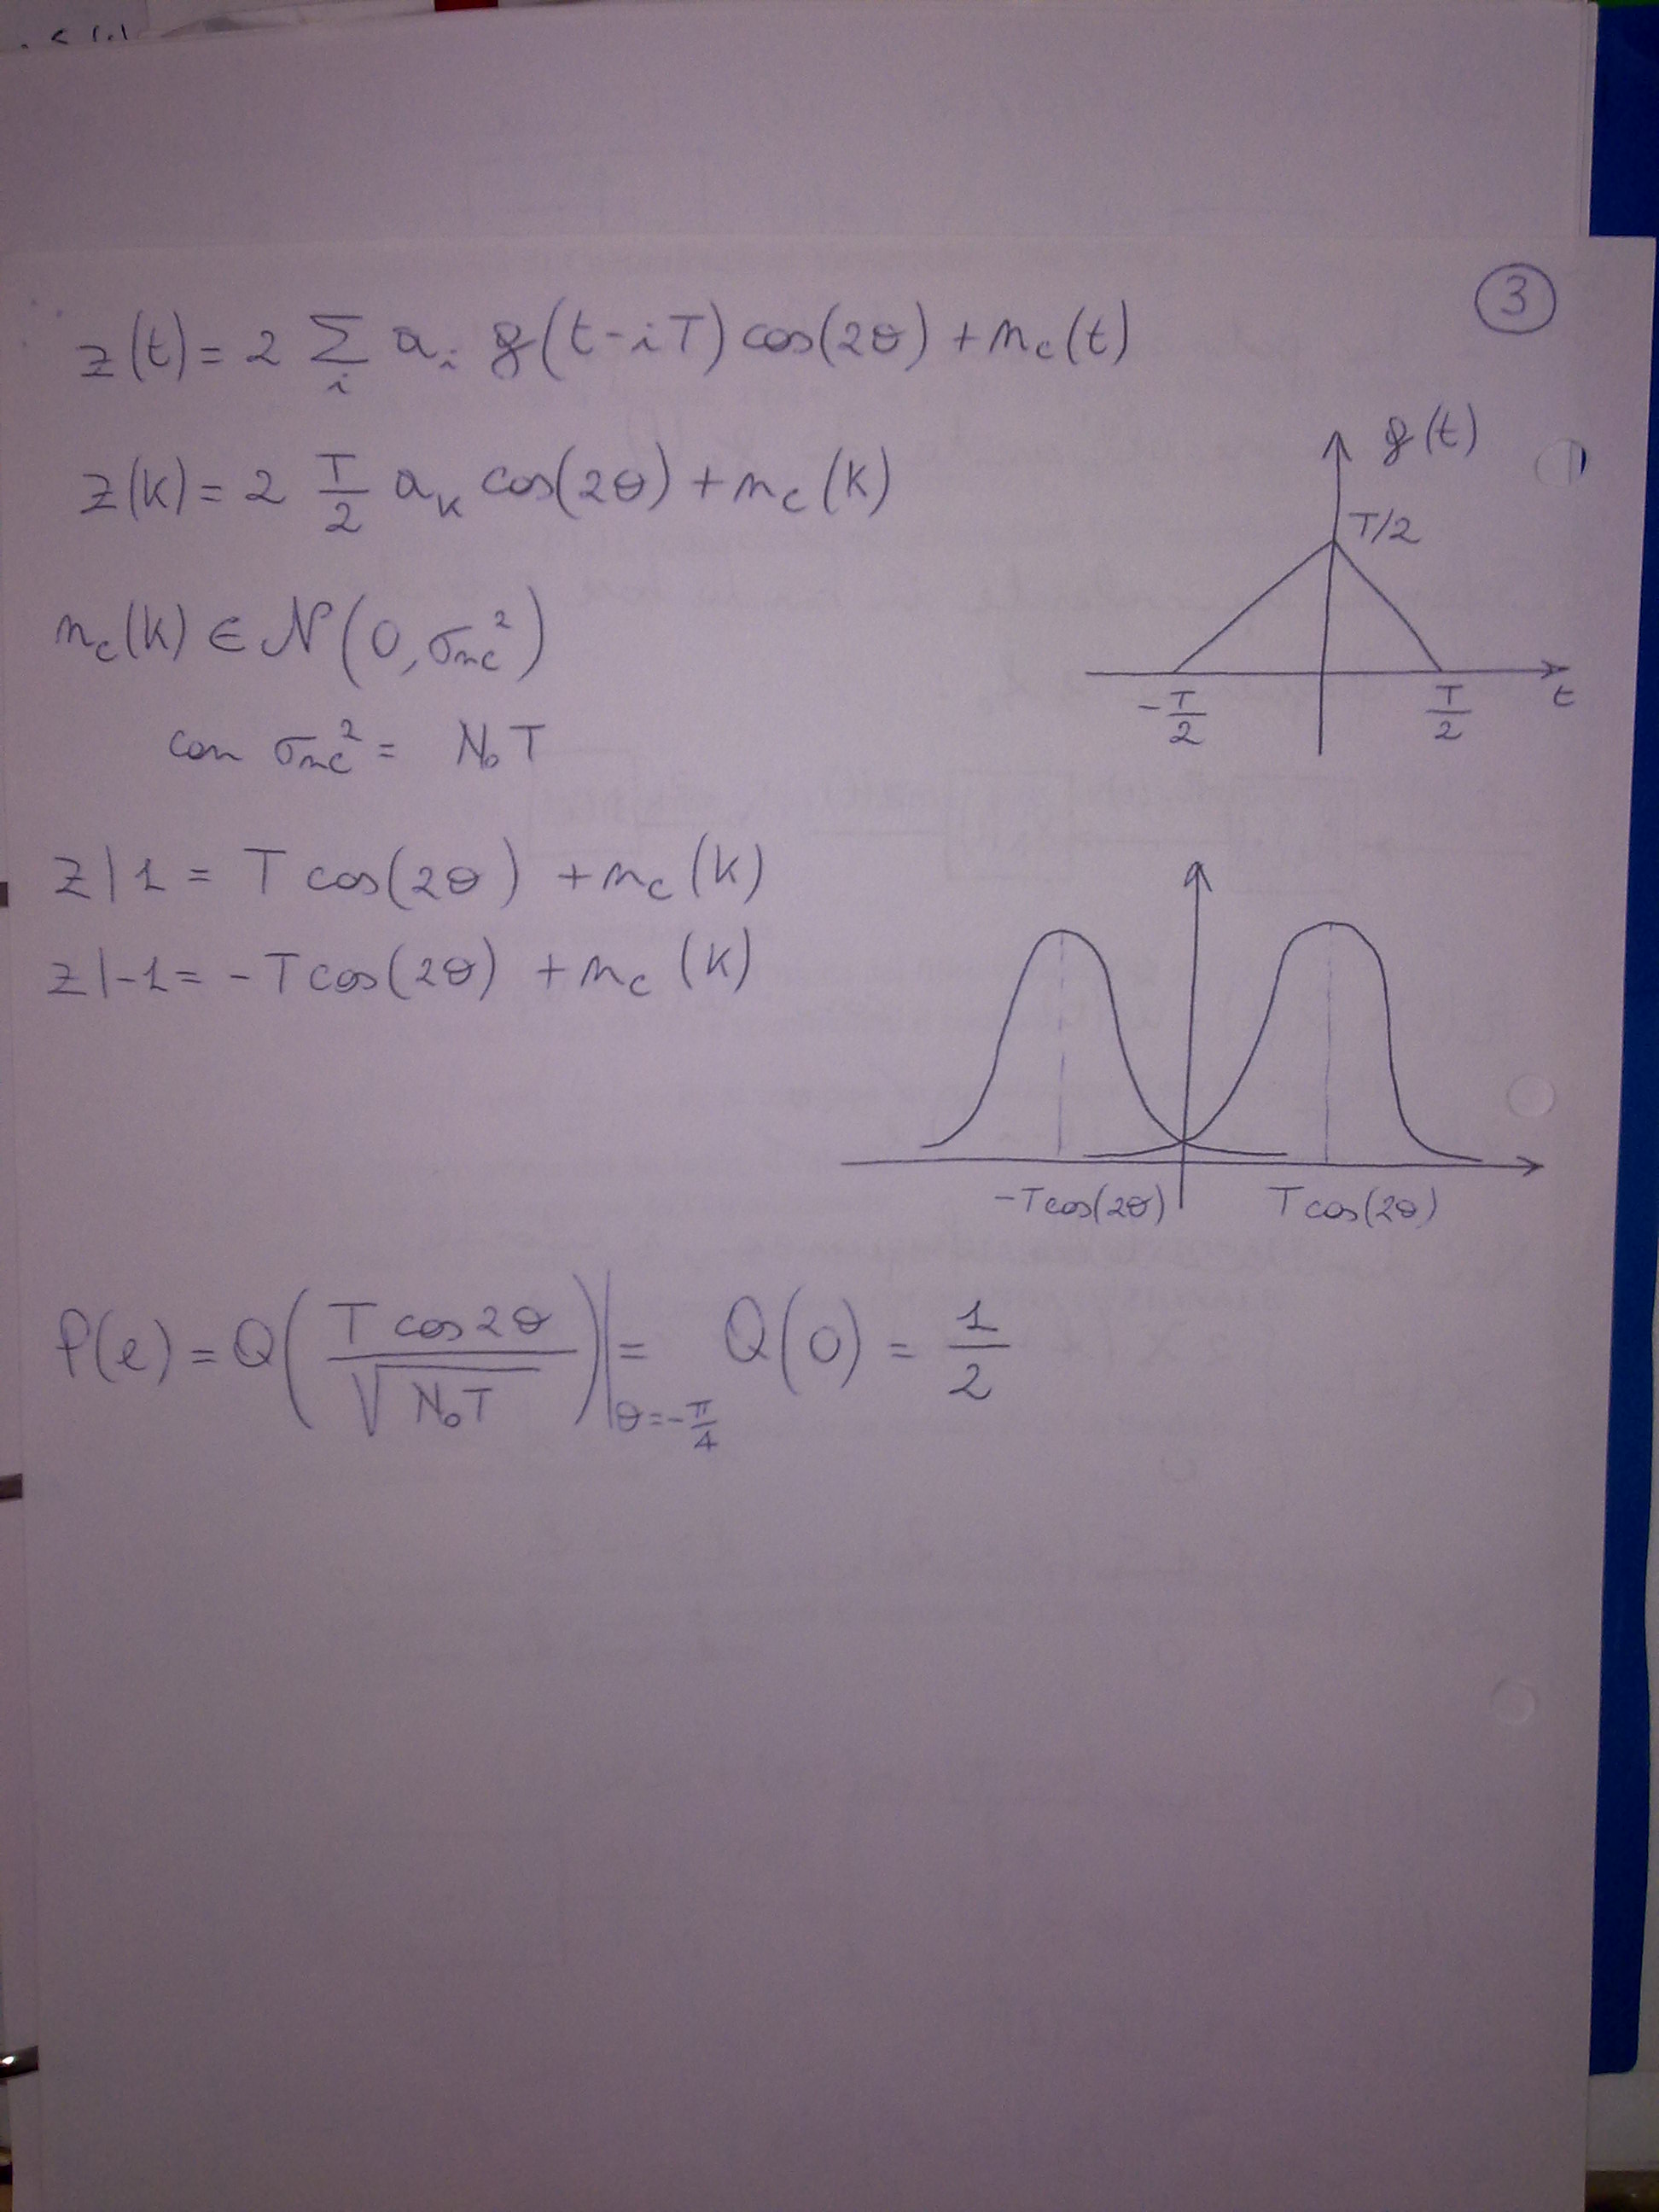 3
z(t) = 2 Σ_i a_i g(t-iT) cos(2θ) + n_c(t)
z(k) = 2 T/2 a_k cos(2θ) + n_c(k)
g(t)
T/2
-T/2
T/2
t
n_c(k) ∈ N(0, σ_nc²)
con σ_nc² = N₀T
z|1 = T cos(2θ) + n_c(k)
z|-1 = -T cos(2θ) + n_c(k)
-T cos(2θ)
T cos(2θ)
P(e) = Q(T cos 2θ / √(N₀T))|_θ=-π/4 = Q(0) = 1/2